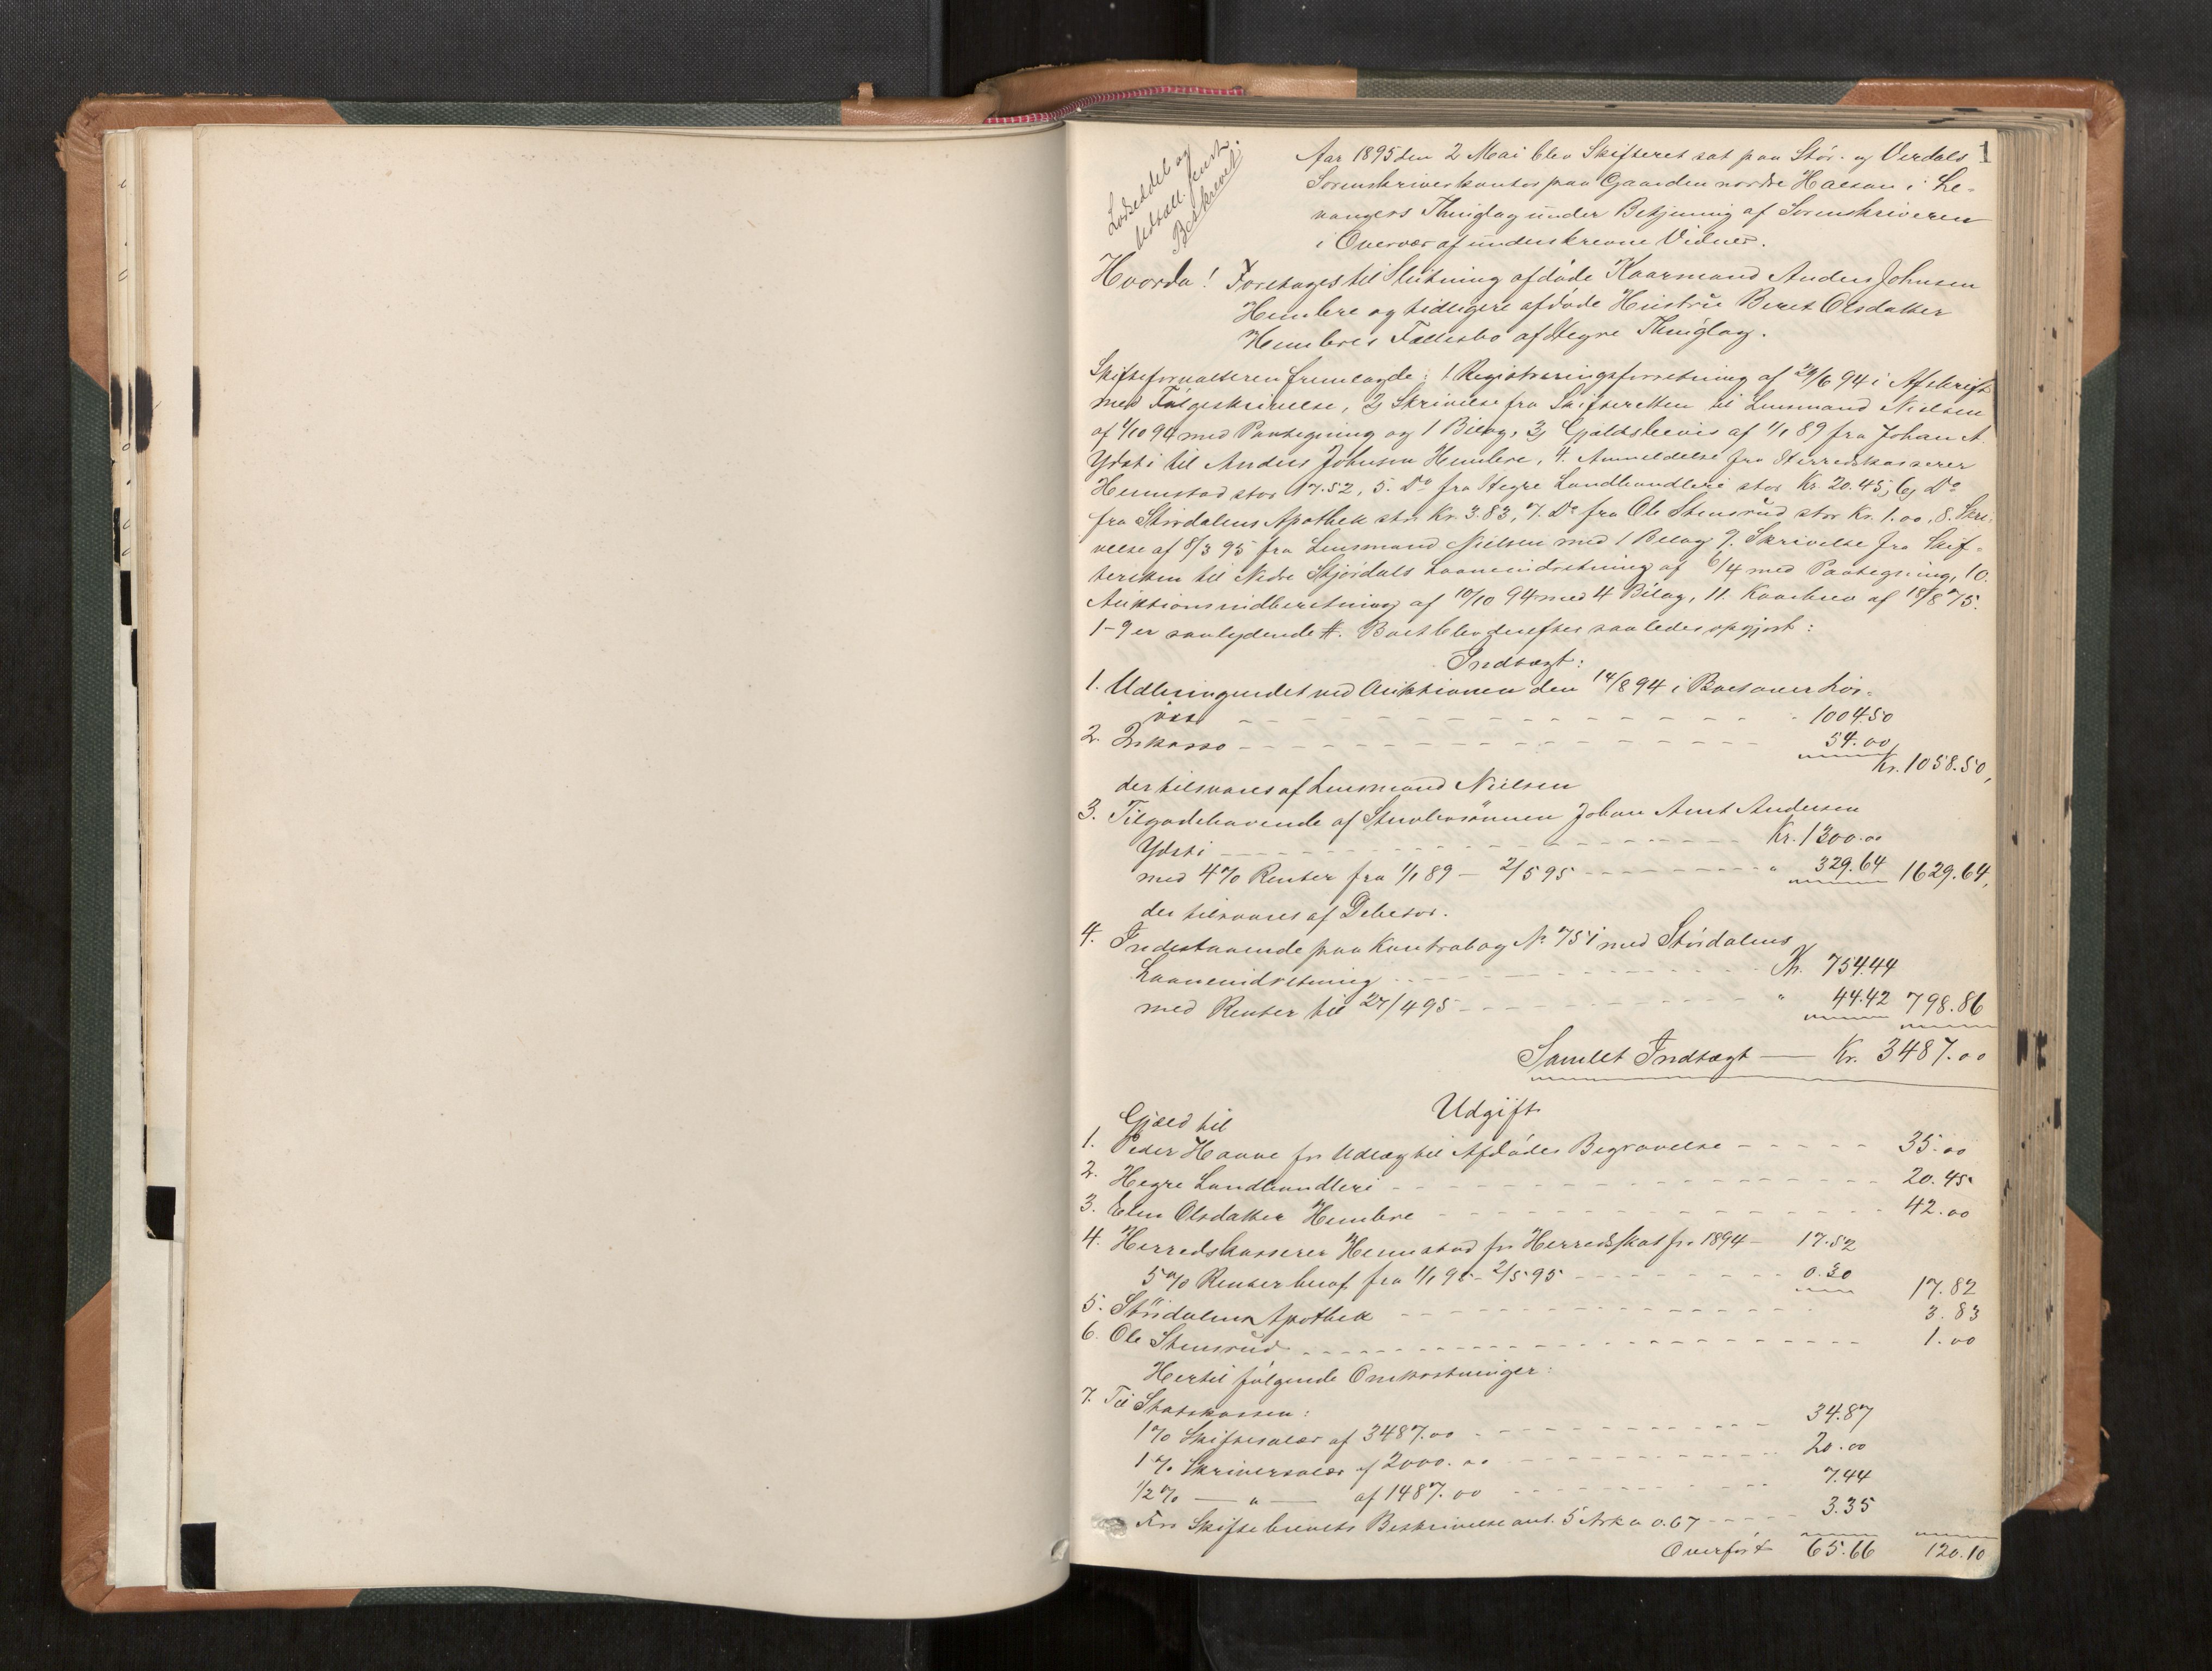 1
Lodseddel og
Udskrevet
Beskrevet
Aar 1895 den 2 Mai blev Skifteret sat paa Stør- og Verdals
Sorenskriverkontor paa Gaarden nordre Halsan i Le-
vangers Thinglag under Betjening af Sorenskriveren
i Overvær af underskrevne Vidner.
Hvorda! Foretoges til Slutning afdøde Kaarmand Anders Johnsen
Hembre og tidligere afdøde Hustru Beret Olsdatter
Hembres Fællesbo af Hegre Thinglag.
Skifteforvalteren fremlagde: 1 Registreringsforretning af 29/6 94 i Afskrift
med Følgeskrivelse, 2) Skrivelse fra Skifteretten til Lensmand Nielsen
af 4/10 94 med Paategning og 1 Bilag, 3) Gjældsbevis af 1/1 89 fra Johan A.
Ydsti til Anders Johnsen Hembre, 4. Anmeldelse fra Herredskasserer
Hemstad stor 17.52, 5. Do fra Hegre Landhandleri stor Kr. 20.45, 6) Do
fra Størdalens Apothek stor Kr. 3.83, 7. Do fra Ole Stensrud stor Kr. 1.00, 8. Skri-
velse af 8/3 95 fra Lensmand Nielsen med 1 Bilag 9. Skrivelse fra Skif-
teretten til Nedre Stjørdals Laaneindretning af 6/4 med Paategning, 10.
Auktionsindberetning af 10/10 94 med 4 Bilag, 11. Kaarbrev af 18/8 75.
1-9 er saalydende #. Boet blev derefter saaledes opgjort:
Indtægt:
1. Udbringendet ved Auktionen den 14/8 94 i Boets Løs-
øre 1004.50
2. Inkasso 54.00
Kr. 1058.50,
der tilsvares af Lensmand Nielsen
3. Tilgodehavende af Stervbosønnen Johan Arnt Andersen
Ydsti Kr. 1300.00
med 4% Renter fra 1/1 89 – 2/5 95 " 329.64 1629.64,
der tilsvares af Debetor.
4. Indestaaende paa Kontrabog No 751 med Størdalens
Laaneindretning Kr. 754.44
med Renter til 27/4 95 " 44.42 798.86
Samlet Indtægt — Kr. 3487.00
Udgift
Gjæld til
1. Peder Haave for Udlæg til Afdødes Begravelse 35.00
2. Hegre Landhandleri 20.45
3. Elen Olsdatter Hembre 42.00
4. Herredskasserer Hemstad for Herredsskat for 1894 17.52
5% Renter heraf fra 1/1 95 - 2/5 95 0.30 17.82
5. Størdalens Apothek 3.83
6. Ole Stensrud 1.00
Hertil følgende Omkostninger:
7. Til Statskassen:
1% Skiftesalær af 3487.00 34.87
1% Skriversalær af 2000.00 20.00
1/2% — " — af 1487.00 7.44
For Skiftebrevets Beskrivelse ant. 5 Ark a 0.67 3.35
Overført 65.66 120.10